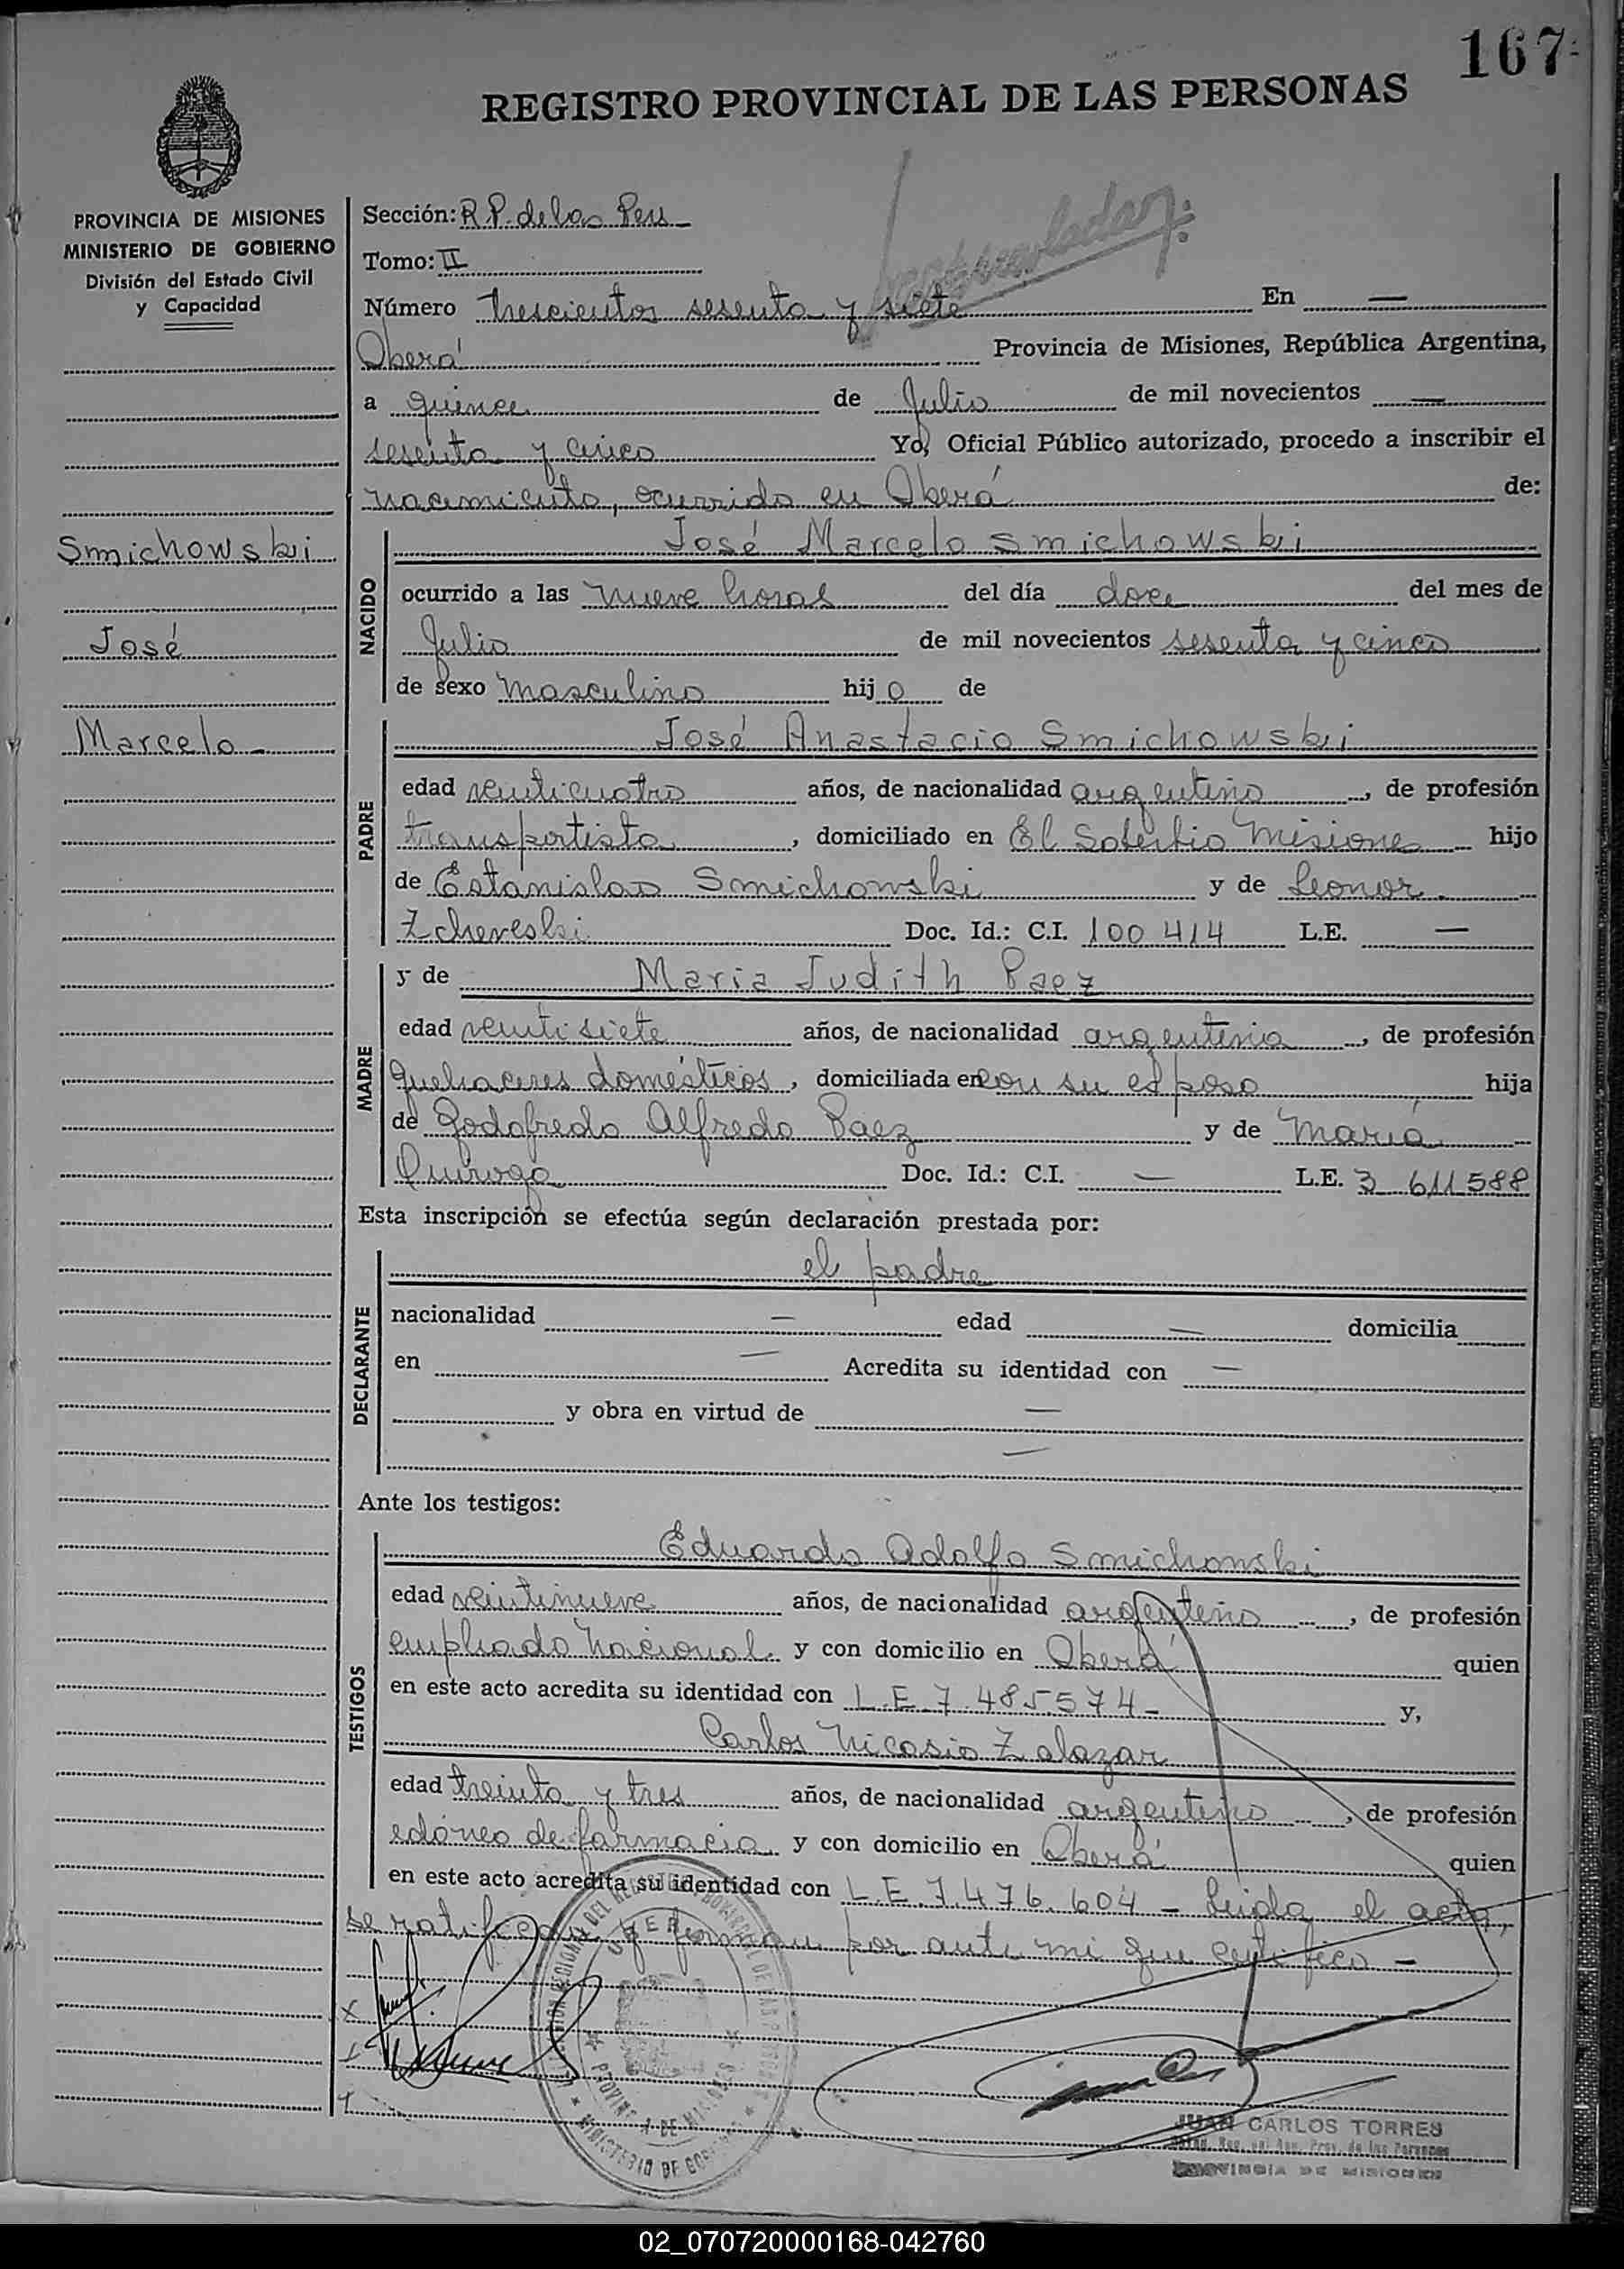 167
REGISTRO PROVINCIAL DE LAS PERSONAS
PROVINCIA DE MISIONES
MINISTERIO DE GOBIERNO
División del Estado Civil
y Capacidad
Smichowski
José
Marcelo
Sección: R P. de las Pers
Tomo: II
Número trescientos sesenta y siete En —
Oberá Provincia de Misiones, República Argentina,
a quince de Julio de mil novecientos —
sesenta y cinco Yo, Oficial Público autorizado, procedo a inscribir el
nacimiento, ocurrido en Oberá de:
NACIDO
José Marcelo Smichowski
ocurrido a las nueve horas del día doce del mes de
Julio de mil novecientos sesenta y cinco
de sexo masculino hijo de
PADRE
José Anastacio Smichowski
edad venticuatro años, de nacionalidad argentino, de profesión
transportista, domiciliado en El Soberbio Misiones hijo
de Estanislao Smichowski y de Leonor
Zchereski Doc. Id.: C.I. 100 414 L.E. —
MADRE
y de Maria Judith Paez
edad ventisiete años, de nacionalidad argentina, de profesión
quehaceres domésticos, domiciliada en con su esposo hija
de Godofredo Alfredo Paez y de María
Quiroga Doc. Id.: C.I. — L.E. 3 611588
Esta inscripción se efectúa según declaración prestada por:
DECLARANTE
el padre
nacionalidad — edad — domicilia
en — Acredita su identidad con —
y obra en virtud de —
—
Ante los testigos:
TESTIGOS
Eduardo Adolfo Smichowski
edad veintinueve años, de nacionalidad argentino, de profesión
empleado nacional y con domicilio en Oberá quien
en este acto acredita su identidad con L.E. 7.485.574- y,
Carlos Nicasio Zalazar
edad treinta y tres años, de nacionalidad argentino, de profesión
edóneo de farmacia y con domicilio en Oberá quien
en este acto acredita su identidad con L.E. 7.476.604 - Leida el acta,
se ratifican y firman por ante mi que certifico -
JUAN CARLOS TORRES
PROVINCIA DE MISIONES
02_070720000168-042760